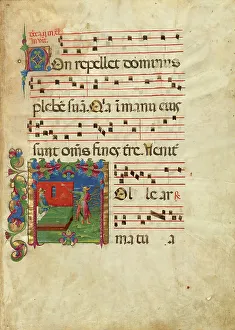 Non repellet dominus
plebē suā. Qā ī manu eius
sunt om̄s fines tr̄e. Uenit
Tolle ar
ma tu a